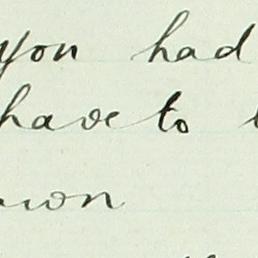 you had
have to
own